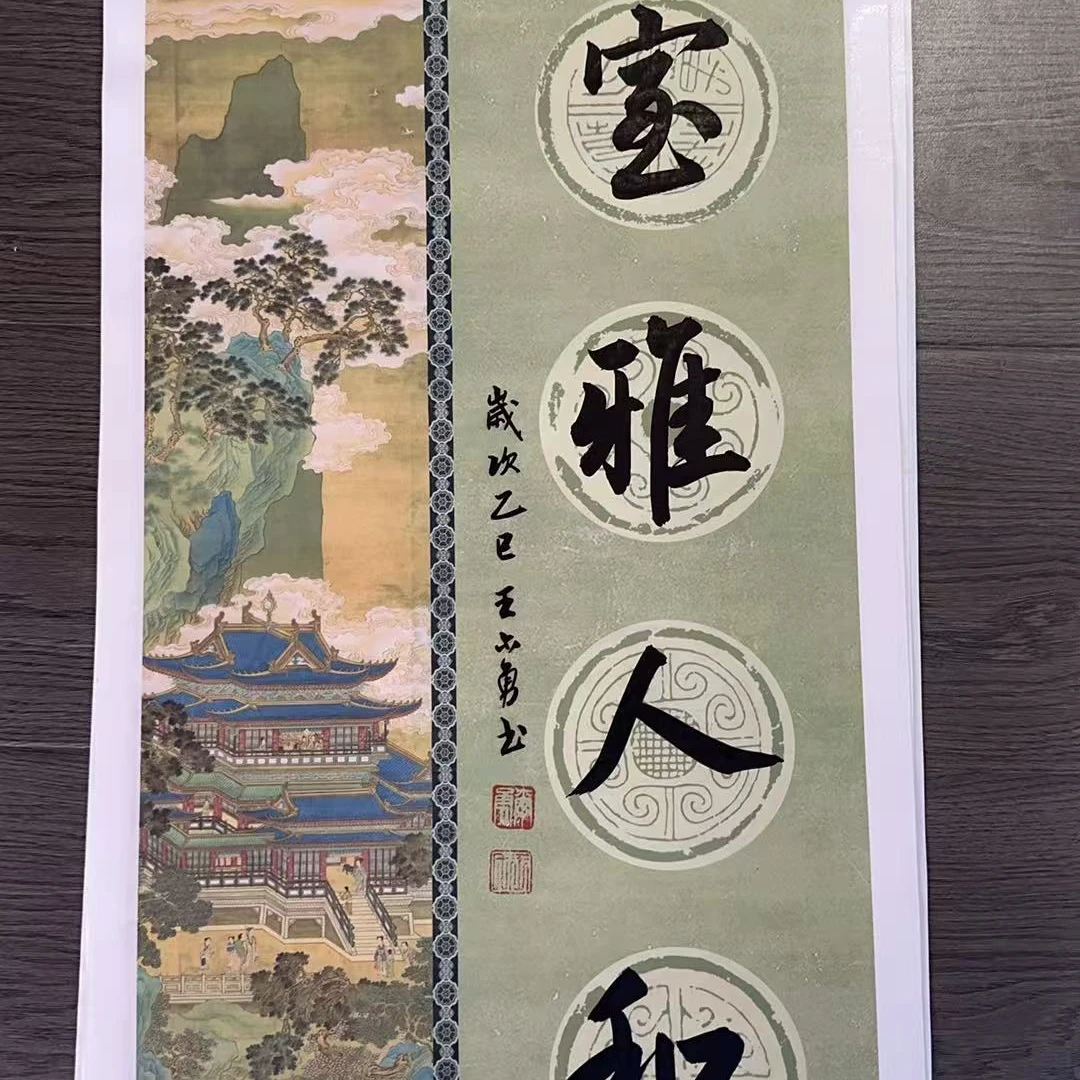 室雅人和
歲次乙巳王小勇書